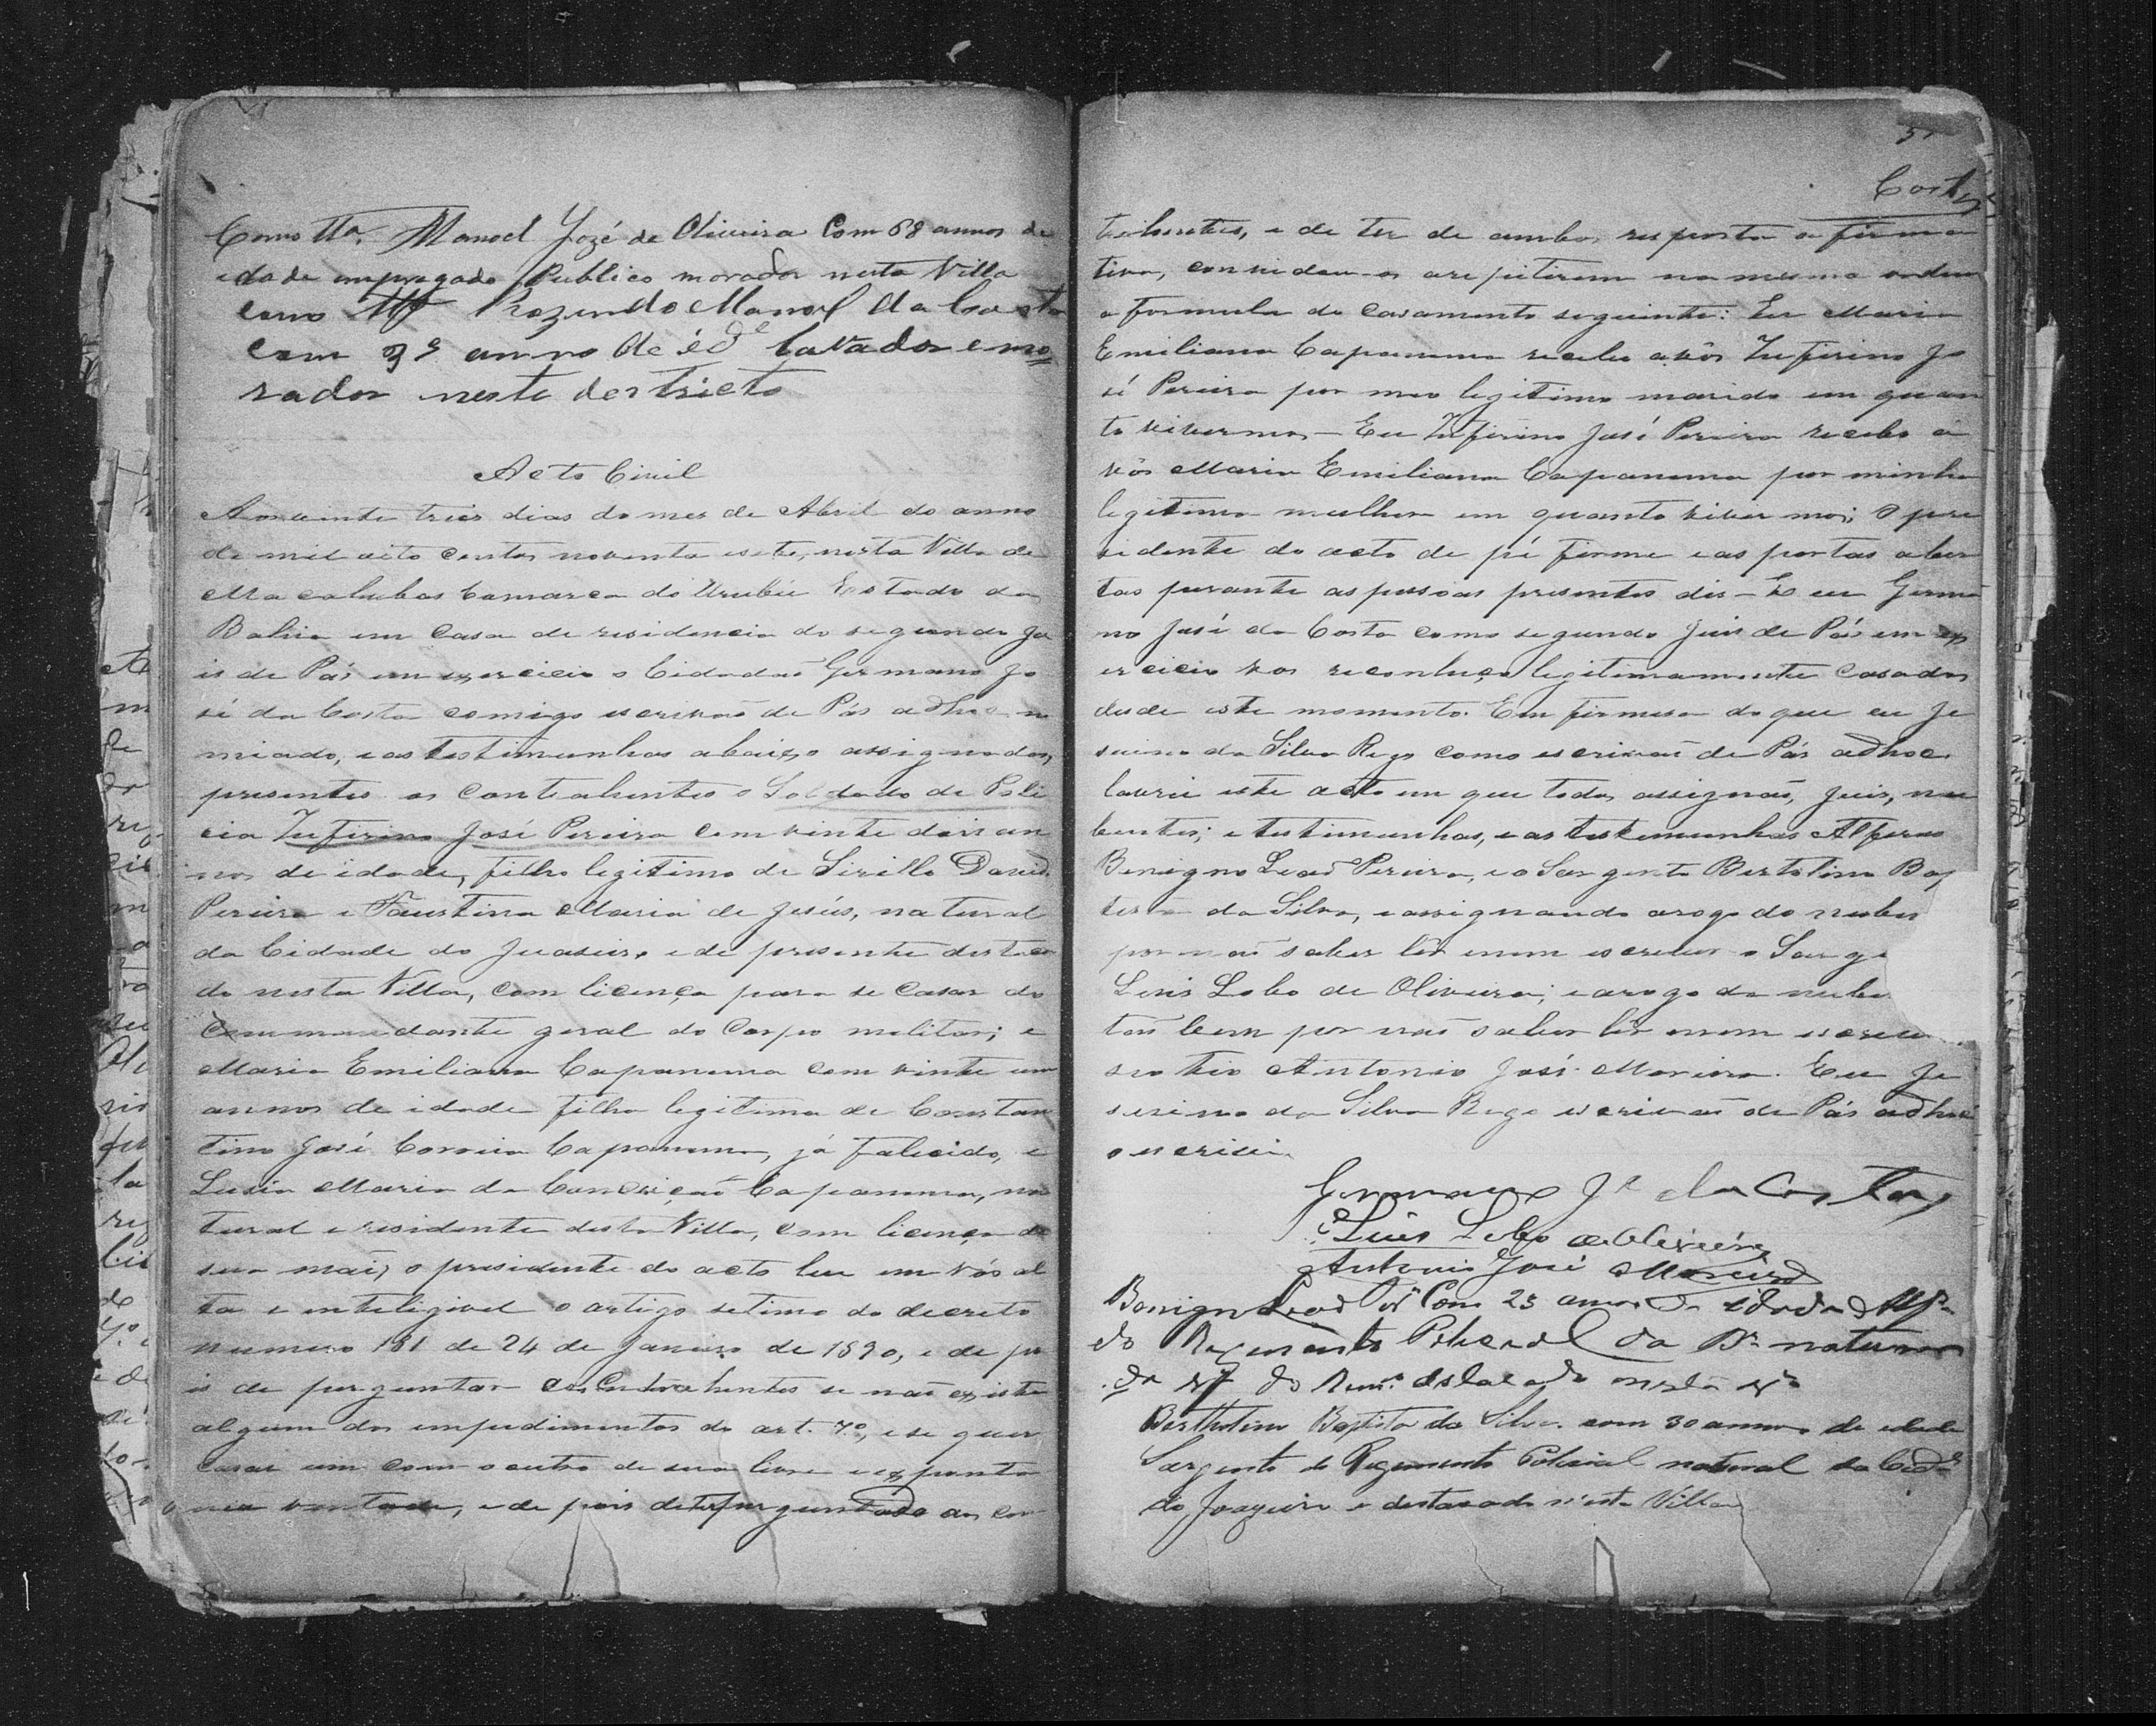 Como tta. Manoel Jozé de Oliveira Com 68 annos de
idade empregado Publico morador nesta Villa
como Rozendo Manoel da Costa
com annos de id.e Lavrador e mo
rador neste destricto
Acto Civil
Aos vinte tres dias do mes de Abril do anno
de mil oito centos noventa e sete, nesta Villa de
Macahubas Comarca do Urubú Estado da
Bahia em Casa de residencia do segundo Ju
is de Pás em exercicio o Cidadaõ Germano Jo
sé da Costa comigo escrivaõ de Pás adhoc no
miado, e as testimunhas abaixo assignadas,
presentes os Contrahentes o Soldado de Poli
cia Zufirino José Pereira com vinte dois an
nos de idade, filho legitimo de Sirillo David
Pereira e Faustina Maria de Jesús, natural
da Cidade do Juaseiro e de presente destaca
do nesta Villa, com licença para se Casar do
Commandante geral do Corpo militar; e
Maria Emiliana Capanema com vinte um
annos de idade filha legitima de Constan
tino José Correia Capanema, já falicido, e
Lusia Maria da Conceiçaõ Capanema, na
tural e residente desta Villa, com licença de
sua maĩ, o presidente do acto leu em vós al
ta e inteligivel o artigo setimo do decreto
numero 181 de 24 de Janeiro de 1890, e de po
is de perguntar aos Contrahentes se naõ existe
algum dos impedimentos do art. 7.º, e se quer
casar um com o outro de sua livre e exponta
nea vontade, e de pois de ter perguntado aos con
Costa
trahentes, e de ter de ambos resposta afirma
tiva, convidou-os a repitirem na mesma ordem
a formula do casamento seguinte: Eu Maria
Emiliana Capanema recebo a vós Zufirino Jo
sé Pereira por meo legitimo marido em quan
to vivermos — Eu Zufirino José Pereira recebo a
vós Maria Emiliana Capanema por minha
legitima mulher em quanto viver mos; O pre
sidente do acto de pé firme e as portas aber
tas perante as pessoas presentes dis — E eu Germa
no José da Costa como segundo Juis de Pás em ex
ercicio vos reconheço legitimamente casados
desde este momento. Em firmesa do que eu Je
suino da Silva Rego como escrivaõ de Pás adhoc
lavrei este acto em que todos assignaõ, juis, nu
bentes; e testimunhas, e as testemunhas Alferes
Benigno Leaõ Pereira, e o Sargento Bertolino Bap
tista da Silva, e assignando arogo do nuben
por naõ saber lêr enem escrever o Sarge
Luis Lobo de Oliveira; e arogo da nube
taõ bem por naõ saber lêr enem escrever
seo tio Antonio José Moreira. Eu Je
suino da Silva Rego escrivaõ de Pás adhoc
o escrivi.
Germano J.e da Costa
Luis Lobo de Oliveira
Antonio José Moreira
Benigno Leaõ Pr.a Com 25 annos de idade Alf.s
do Regimento Policial da B.a natural
da do destacado nesta
Bertholino Baptista da Silva com 30 annos de idade
Sargento do Regimento Policial natural da Cid.e
do Joazeiro e destacado n'esta Villa